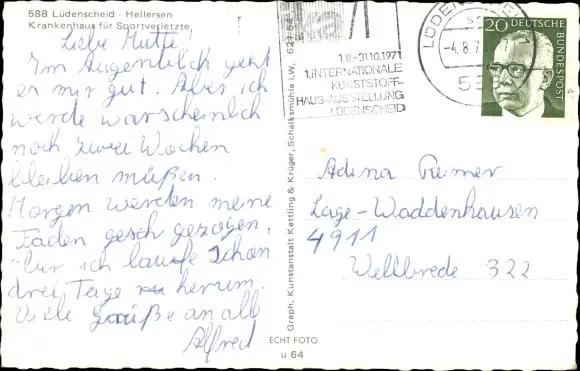 588 Lüdenscheid - Hellersen
Krankenhaus für Sportverletzte
Liebe Mutti!
Im Augenblick geht
es mir gut. Aber ich
werde warscheinlich
noch zwei Wochen
bleiben müßen.
Morgen werden meine
Faden gezogen,
ich laufe schon
drei Tage herrum.
Viele Grüße an alle
Alfred
Graph. Kunstanstalt Kettling & Krüger, Schalksmühle i.W. 621 54
ECHT FOTO
u 64
1.8-31.10.1971
1.INTERNATIONALE
KUNSTSTOFF-
HAUS-AUSSTELLUNG
LÜDENSCHEID
LÜDENSCHEID
-4.8.7
20 DEUTSCHE
BUNDESPOST
Adina Reimer
Lage-Waddenhausen
4911
Wellbrede 322